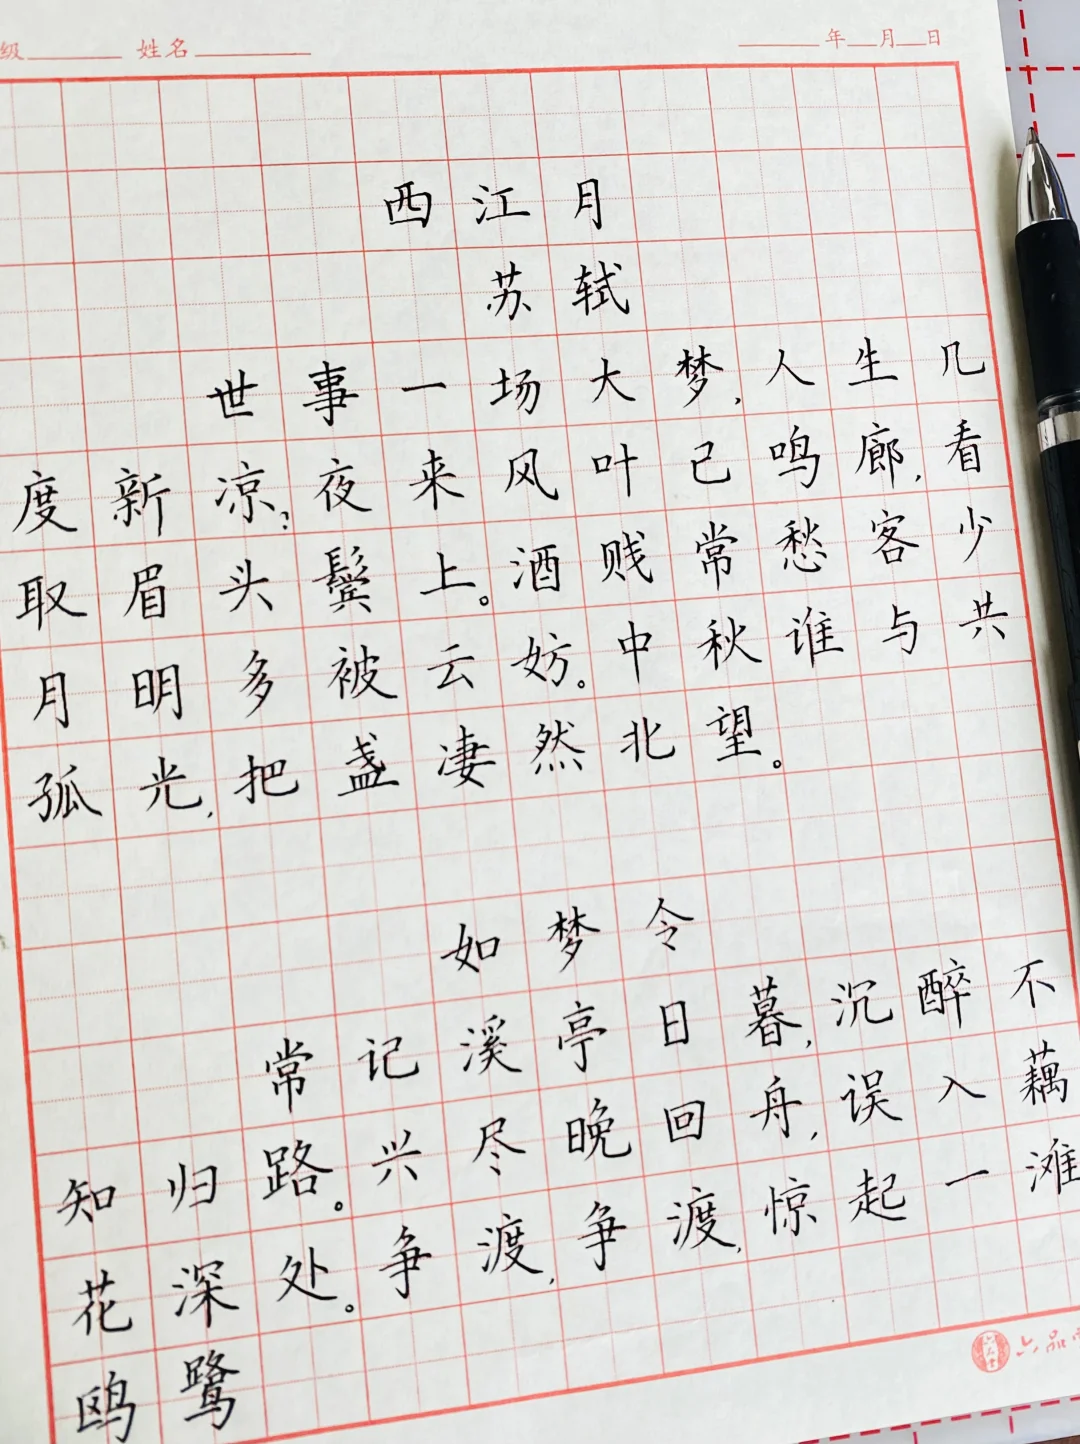 级 姓名 年 月 日
西江月
苏轼
世事一场大梦,人生几
度新凉?夜来风叶已鸣廊,看
取眉头鬓上。酒贱常愁客少
月明多被云妨。中秋谁与共
孤光,把盏凄然北望。
如梦令
常记溪亭日暮,沉醉不
知归路。兴尽晚回舟,误入藕
花深处。争渡,争渡,惊起一滩
鸥鹭
六品